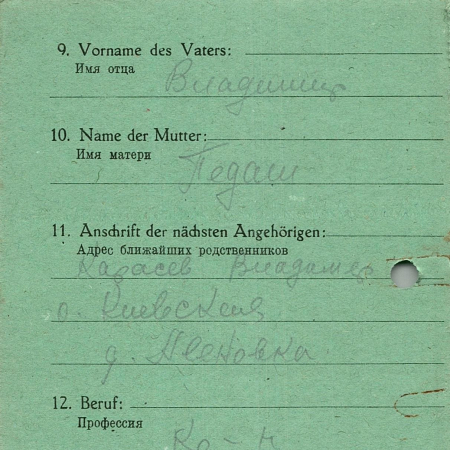 9. Vorname des Vaters:
Имя отца
Владимир
10. Name der Mutter:
Имя матери
Педаш
11. Anschrift der nächsten Angehörigen:
Адрес ближайших родственников
Карасев Владимир
о. Киевская
д.
12. Beruf:
Профессия